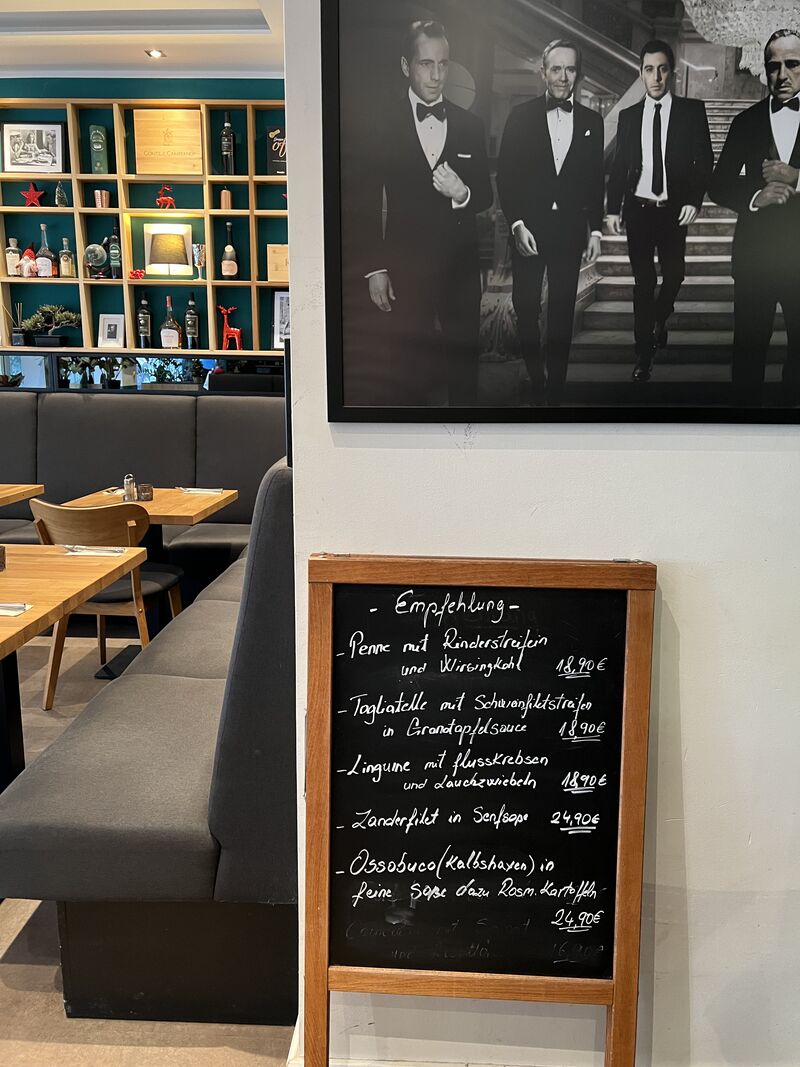 CONTE DI CAMPIANO
- Empfehlung -
- Penne mit Rinderstreifein
und Wirsingkohl 18,90€
- Tagliatelle mit Schweinfiletstreifen
in Granatapfelsauce 18,90€
- Linguine mit flusskrebsen
und Lauchzwiebeln 18,90€
- Zanderfilet in Senfsoße 24,90€
- Ossobuco (Kalbshaxen) in
feine Soße dazu Rosm. Kartoffeln
24,90€
16,90€